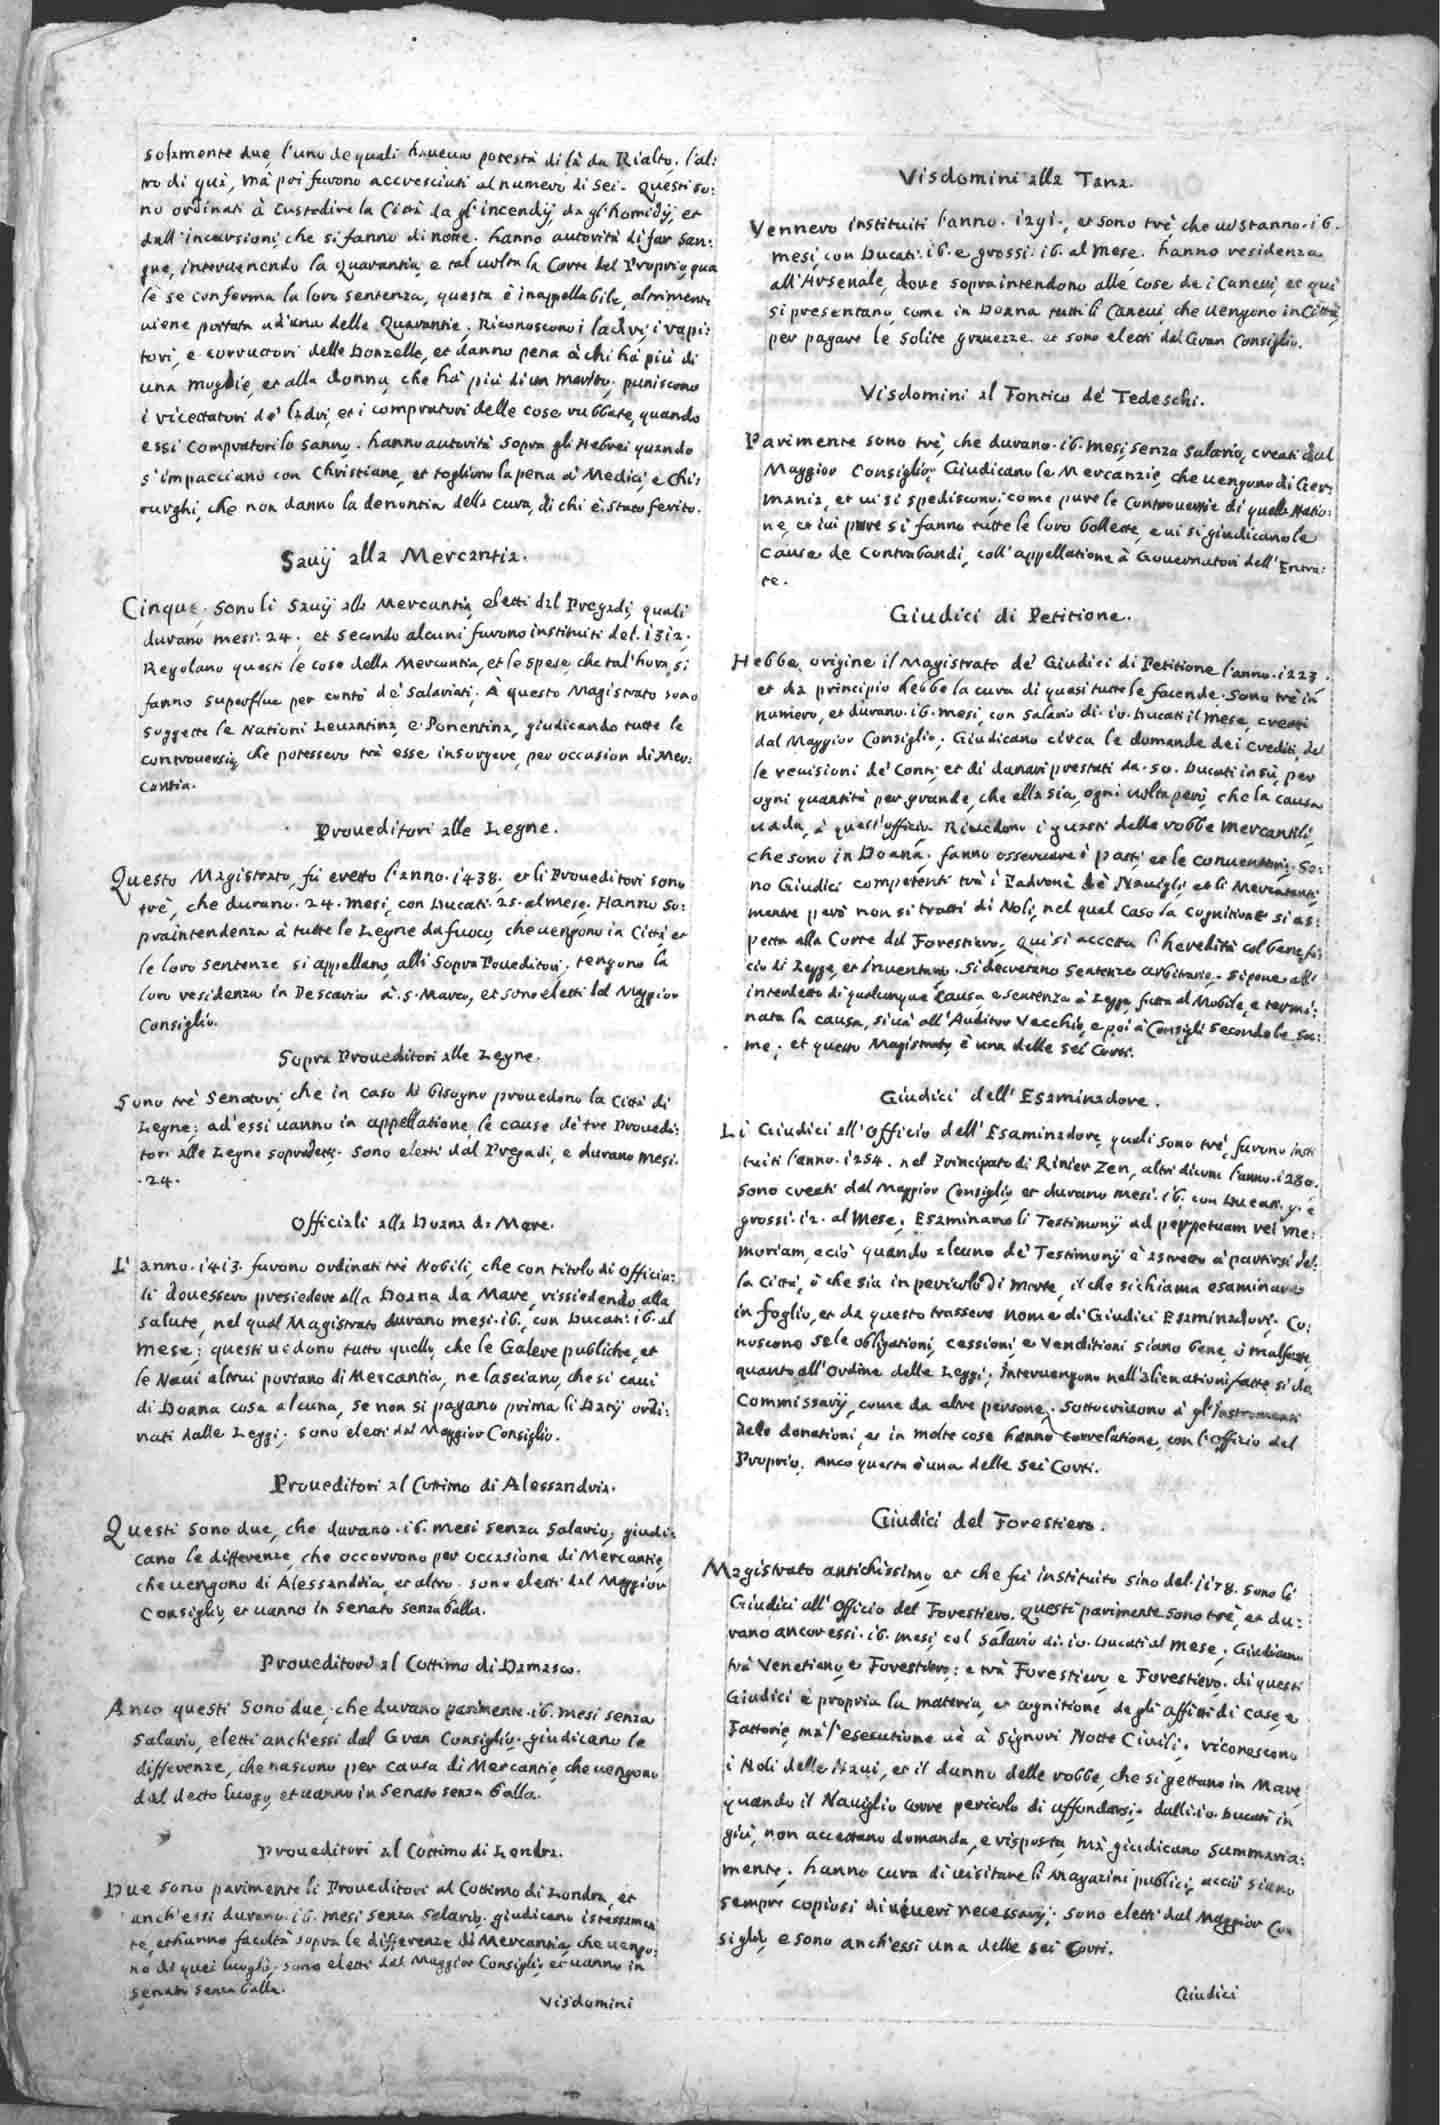 solamente due, l'uno de quali haueua potestà di là da Rialto, l'al:
tro di quà, mà poi furono accresciuti al numero di sei. Questi so:
no ordinati à Custodire la Città da gl'incendij, da gl'homidij, et
dall'incursioni, che si fanno di notte. hanno autorità di far San:
gue, interuenendo la Quarantia, e tal uolta la Corte del Proprio, qua
le se conferma la loro sentenza, questa è inappellabile, altrimente
uiene portata ad'una delle Quarantie. Riconoscono i ladri, i rapi:
tori, e corruttori delle Donzelle, et danno pena à chi hà più di
una moglie, et alla donna, che hà più di un marito. puniscono
i ricettatori de' ladri, et i compratori delle cose rubbate, quando
essi Compratori lo sanno. hanno autorità sopra gli Hebrei quando
s'impacciano con Christiane, et togliono la pena à Medici, e Chi:
rurghi, che non danno la denontia della cura, di chi è stato ferito.
Sauij alla Mercantia.
Cinque sono li Sauij alla Mercantia, eletti dal Pregadi, quali
durano mesi. 24. et secondo alcuni furono instituiti del. 1312.
Regolano questi le cose della Mercantia, et le spese, che tal'hora, si
fanno superflue per conto de' Salariati. À questo Magistrato sono
soggette le Nationi Leuantina, e Ponentina, giudicando tutte le
controuersie, che potessero trà esse insorgere, per occasion di Mer:
cantia.
Proueditori alle Legne.
Questo Magistrato, fù eretto l'anno. 1438. et li Proueditori sono
trè, che durano. 24. mesi, con Ducati. 25. al mese. Hanno So:
praintendenza à tutte le Legne da fuoco, che uengono in Città, et
le loro sentenze si appellano, alli Sopra Poueditori. tengono la
loro residenza in Pescaria à. S. Marco, et sono eletti dal Maggior
Consiglio.
Sopra Proueditori alle Legne.
Sono trè Senatori, che in caso di bisogno prouedono la Città di
Legne; ad'essi uanno in appellatione, le cause de' tre Prouedi:
tori alle Legne sopradetti. sono eletti dal Pregadi, e durano mesi.
.24.
Officiali alla Doana da Mare.
L'anno. 1413. furono ordinati trè Nobili, che con titolo di Officia:
li douessero presiedere alla Doana da Mare, rissiedendo alla
salute, nel qual Magistrato durano mesi. 16., con Ducati. 16. al
mese; questi uedono tutto quello, che le Galere publiche, et
le Naui altrui portano di Mercantia, ne lasciano, che si caui
di Doana cosa alcuna, se non si pagano prima li Datij ordi:
nati dalle Leggi. sono eletti dal Maggior Consiglio.
Proueditori al Cottimo di Alessandria.
Questi sono due, che durano. 16. mesi senza salario, giudi:
cano le differenze, che occorrono per occasione di Mercantie,
che uengono di Alessandria, et altro. sono eletti dal Maggior
Consiglio, et uanno in Senato senza balla.
Proueditori al Cottimo di Damasco.
Anco questi sono due, che durano parimente. 16. mesi senza
salario, eletti anch'essi dal Gran Consiglio. giudicano le
differenze, che nascono per causa di Mercantie, che uengono
dal detto luogo, et uanno in Senato senza balla.
Proueditori al Cottimo di Londra.
Due sono parimente li Proueditori al Cottimo di Londra, et
anch'essi durano. 16. mesi senza salario. giudicano istessamen
te, et hanno facoltà sopra le differenze di Mercantia, che uengo:
no di quei luoghi. sono eletti dal Maggior Consiglio, et uanno in
senato senza balla.
Visdomini
Visdomini alla Tana.
Vennero instituiti l'anno. 1291., et sono trè, che ui stanno. 16.
mesi, con Ducati. 16. e grossi. 16. al mese. hanno residenza
all'Arsenale, doue sopraintendono alle cose de i Caneui, et qui
si presentano, come in Doana tutti li Caneui, che uengono in Città,
per pagare le solite grauezze. et sono eletti dal Gran Consiglio.
Visdomini al Fontico de' Tedeschi.
Parimente sono trè, che durano. 16. mesi, senza salario, creati dal
Maggior Consiglio. Giudicano le Mercanzie, che uengono di Ger:
mania, et ui si spediscono, come pure le Controuersie di quella Natio:
ne, et iui pure si fanno tutte le loro bollette, e ui si giudicano le
cause de Contrabandi, coll'appellatione à Gouernatori dell'Entra:
te.
Giudici di Petitione.
Hebbe origine il Magistrato de' Giudici di Petitione l'anno. 1223.
et da principio hebbe la cura di quasi tutte le facende. Sono trè in
numero, et durano. 16. mesi, con salario di. 10. Ducati il mese, creati
dal Maggior Consiglio. Giudicano circa le domande dei crediti, del
le reuisioni de' Conti, et di danari prestati da. 50. Ducati in sù, per
ogni quantità per grande, che ella sia, ogni uolta però, che la causa
uada, à quest'officio. Riuedono i guasti delle robbe Mercantili,
che sono in Doana. fanno osseruare i patti, et le conuentioni. So:
no Giudici competenti trà i Padroni de' Nauigli, et li Mercatanti,
mentre però non si tratti di Noli, nel qual Caso la cognitione si as:
petta alla Corte del Forestiero. Qui si accetta l'heredità col benefi:
cio di Legge, et inuentario. Si decretano Sentenze arbitrarie. si pone all'
interdetto di qualunque Causa, e sentenza à Legge, fatta al Mobile, e termi:
nata la causa, si uà all'Auditor Vecchio, e poi à Consigli secondo le so:
me. et questo Magistrato, è una delle sei Corti.
Giudici dell'Esaminadore.
Li Giudici all'Officio dell'Esaminadore, quali sono trè, furono insti
tuiti l'anno. 1254. nel Principato di Rinier Zen, altri dicono l'anno. 1280.
Sono creati dal Maggior Consiglio, et durano mesi. 16. con Ducati. 9. e
grossi. 12. al Mese. Esaminano li Testimonij ad perpetuam rei me:
moriam, e ciò quando alcuno de' Testimonij è astretto à partirsi del:
la Città, ò che sia in pericolo di morte, il che si chiama esaminare
in foglio, et da questo trassero nome di Giudici Esaminadori. Co:
noscono se le obligationi, cessioni, e Venditioni siano bene, ò malfatte,
quanto all'Ordine delle Leggi; Interuengono nell'alienationi fatte, si da
Commissarij, come da altre persone. Sottoscriuono à gl'Instromenti
delle donationi, et in molte cose hanno correlatione, con l'Officio del
Proprio. Anco questa è una delle sei Corti.
Giudici del Forestiero.
Magistrato antichissimo, et che fù instituito sino del. 1178. sono li
Giudici all'Officio del Forestiero. Questi parimente sono trè, et du:
rano ancor essi. 16. mesi, col salario di. 10. Ducati al mese. Giudicano
trà Venetiano, e Forestiero; e trà Forestiero, e Forestiero. di questi
Giudici è propria la materia, et cognitione degli affitti di case, e
Fattorie, mà l'esecutione uà à Signori Notte Ciuili. riconoscono
i Noli delle Naui, et il danno delle robbe, che si gettano in Mare,
quando il Nauiglio corre pericolo di affondarsi. dalli. 10. Ducati in
giù, non accettano domanda, e risposta, mà giudicano summaria:
mente. hanno cura di uisitare li Magazini publici, acciò siano
sempre copiosi di uiueri necessarij; sono eletti dal Maggior Con
siglio, e sono anch'essi una delle sei Corti.
Giudici